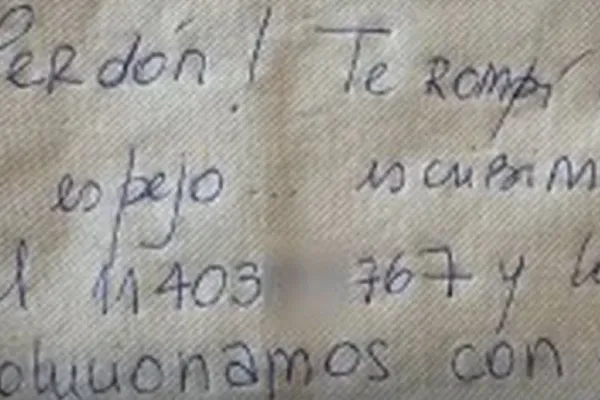 Perdón! Te rompí
espejo... escribim
l 11403 767 y l
olucionamos con